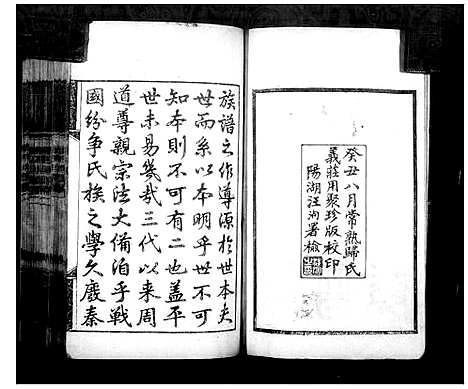 癸丑八月常熟歸氏
義莊用聚珍版校印
陽湖汪洵署檢
族譜之作尊源於世本夫
世而系以本明乎世不可
知本則不可有二也蓋平
世未易幾哉三代以来周
道尊親宗法大備泊乎戰
國紛争氏族之學久廢秦